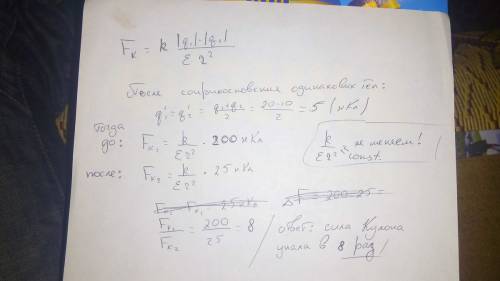 F_K = k |q₁|·|q₂| / ε r²
После соприкосновения одинаковых тел:
q₁' = q₂' = (q₁+q₂)/2 = (20-10)/2 = 5 (нКл)
Тогда
до: F_K₁ = k/(εr²) · 200 нКл
k/(εr²) не меняем!
const.
после: F_K₂ = k/(εr²) · 25 нКл
ΔF = 200-25 =
F_K₁/F_K₂ = 200/25 = 8
ответ: сила Кулона
упала в 8 раз